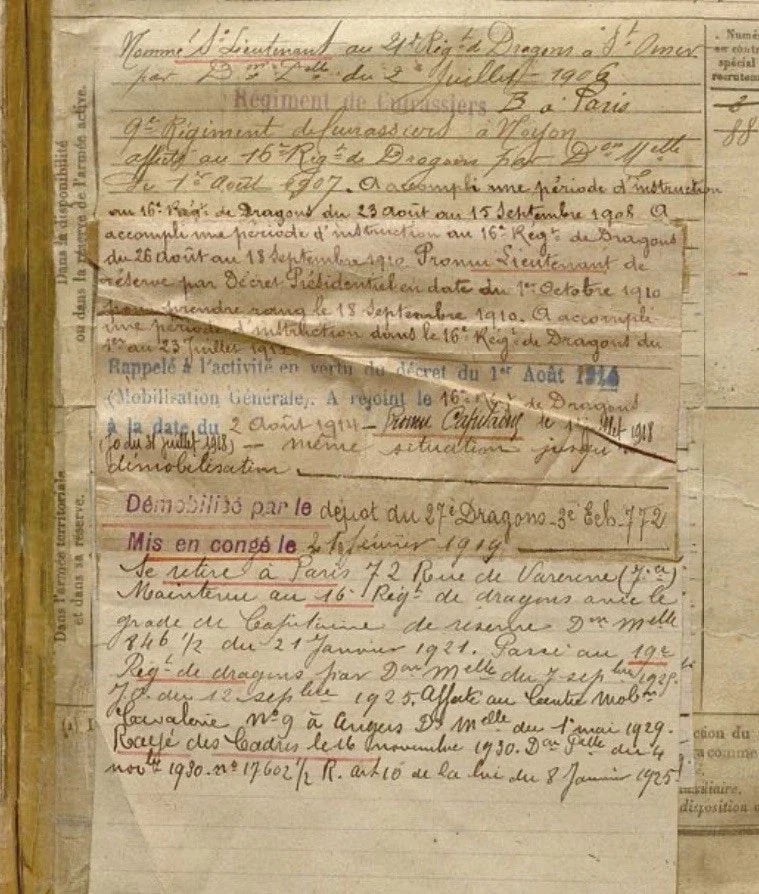 Nommé S/s Lieutenant au 21e Régt de Dragons à St Omer
par Don Mlle du 2 Juillet 1906
Régiment de Cuirassiers B à Paris
9e Régiment de Cuirassiers à Noyon
affecté au 16e Régt de Dragons par Don Melle
du 1er Août 1907. A accompli une période d'instruction
au 16e Régt de Dragons du 23 août au 15 Septembre 1908. A
accompli une période d'instruction au 16e Régt de Dragons
du 26 août au 18 Septembre 1910 Promu Lieutenant de
réserve par Décret Présidentiel en date du 1er Octobre 1910
pour prendre rang le 18 Septembre 1910. A accompli
une période d'instruction dans le 16e Régt de Dragons du
1er au 23 Juillet
Rappelé à l'activité en vertu du décret du 1er Août 1914
(Mobilisation Générale). A rejoint le 16e Régt de Dragons
à la date du 2 Août 1914 – Promu Capitaine le 1918
(Jo du 31 juillet 1918) – même situation jusqu'à
démobilisation.
Démobilisé par le dépôt du 27e Dragons – 3e Ech – 772
Mis en congé le février 1919
Se retire à Paris 72 Rue de Varenne (7e a)
Maintenu au 16e Régt de dragons avec le
grade de Capitaine de réserve Don Melle
846 1/2 du 21 Janvier 1921. Passé au 19e
Régt de dragons par Don Melle du 7 septbre 1925.
Jo du 12 septbre 1925. Affecté au Centre Mobon
Cavalerie No 9 à Angers Don Melle du 1er mai 1929.
Rayé des Cadres le 16 novembre 1930. Don Plle du 4
novbre 1930. no 17602 1/2 R. art 10 de la loi du 8 Janvier 1925
Dans la disponibilité
ou dans la réserve de l'armée active.
Dans l'armée territoriale
et dans sa réserve.
Numéro
au contrôle
spécial
recrutement
88
ction du
ra comme
disposition